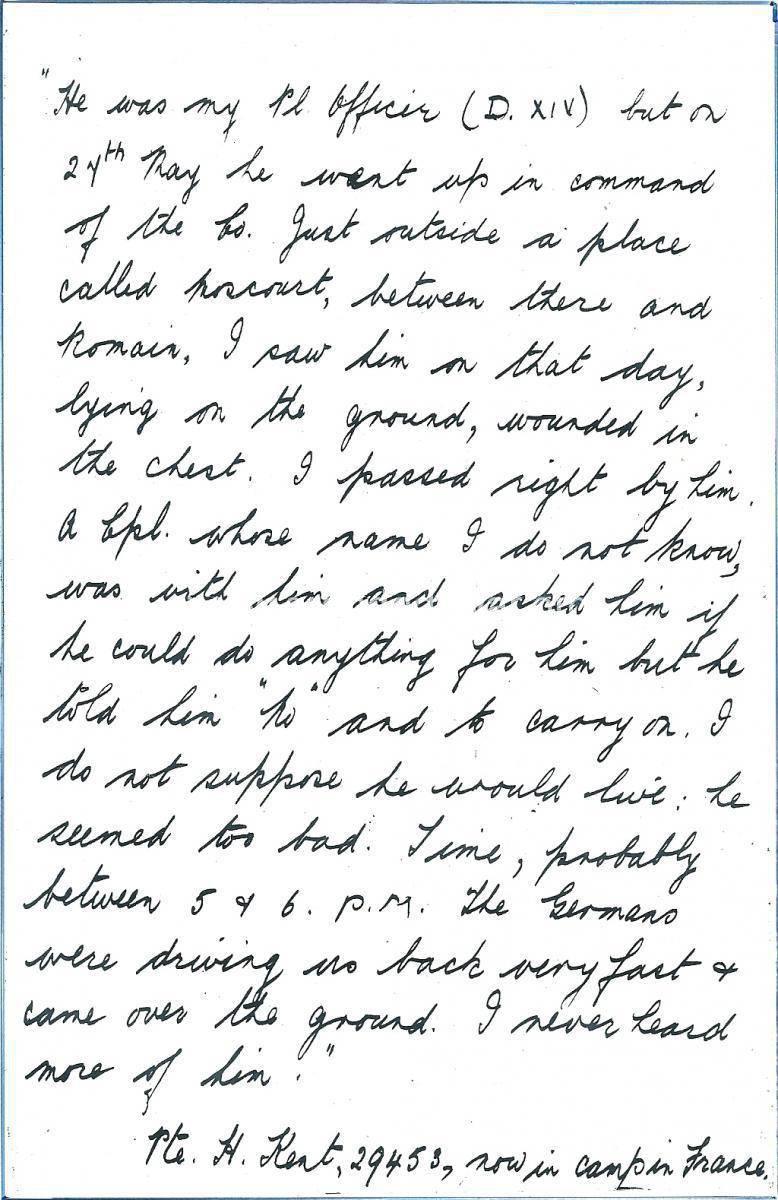 "He was my Pl. Officer (D. XIV) but on
27th May he went up in command
of the Co. Just outside a place
called Roscourt, between there and
Romain, I saw him on that day,
lying on the ground, wounded in
the chest. I passed right by him.
A Cpl. whose name I do not know,
was with him and asked him if
he could do anything for him but he
told him "No" and to carry on. I
do not suppose he would live; he
seemed too bad. Time, probably
between 5 & 6. P.M. The Germans
were driving us back very fast &
came over the ground. I never heard
more of him."
Pte. H. Kent, 29453, now in camp in France.